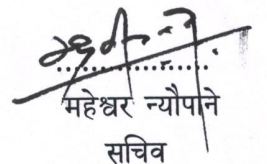 ....................
महेश्वर न्यौपाने
सचिव